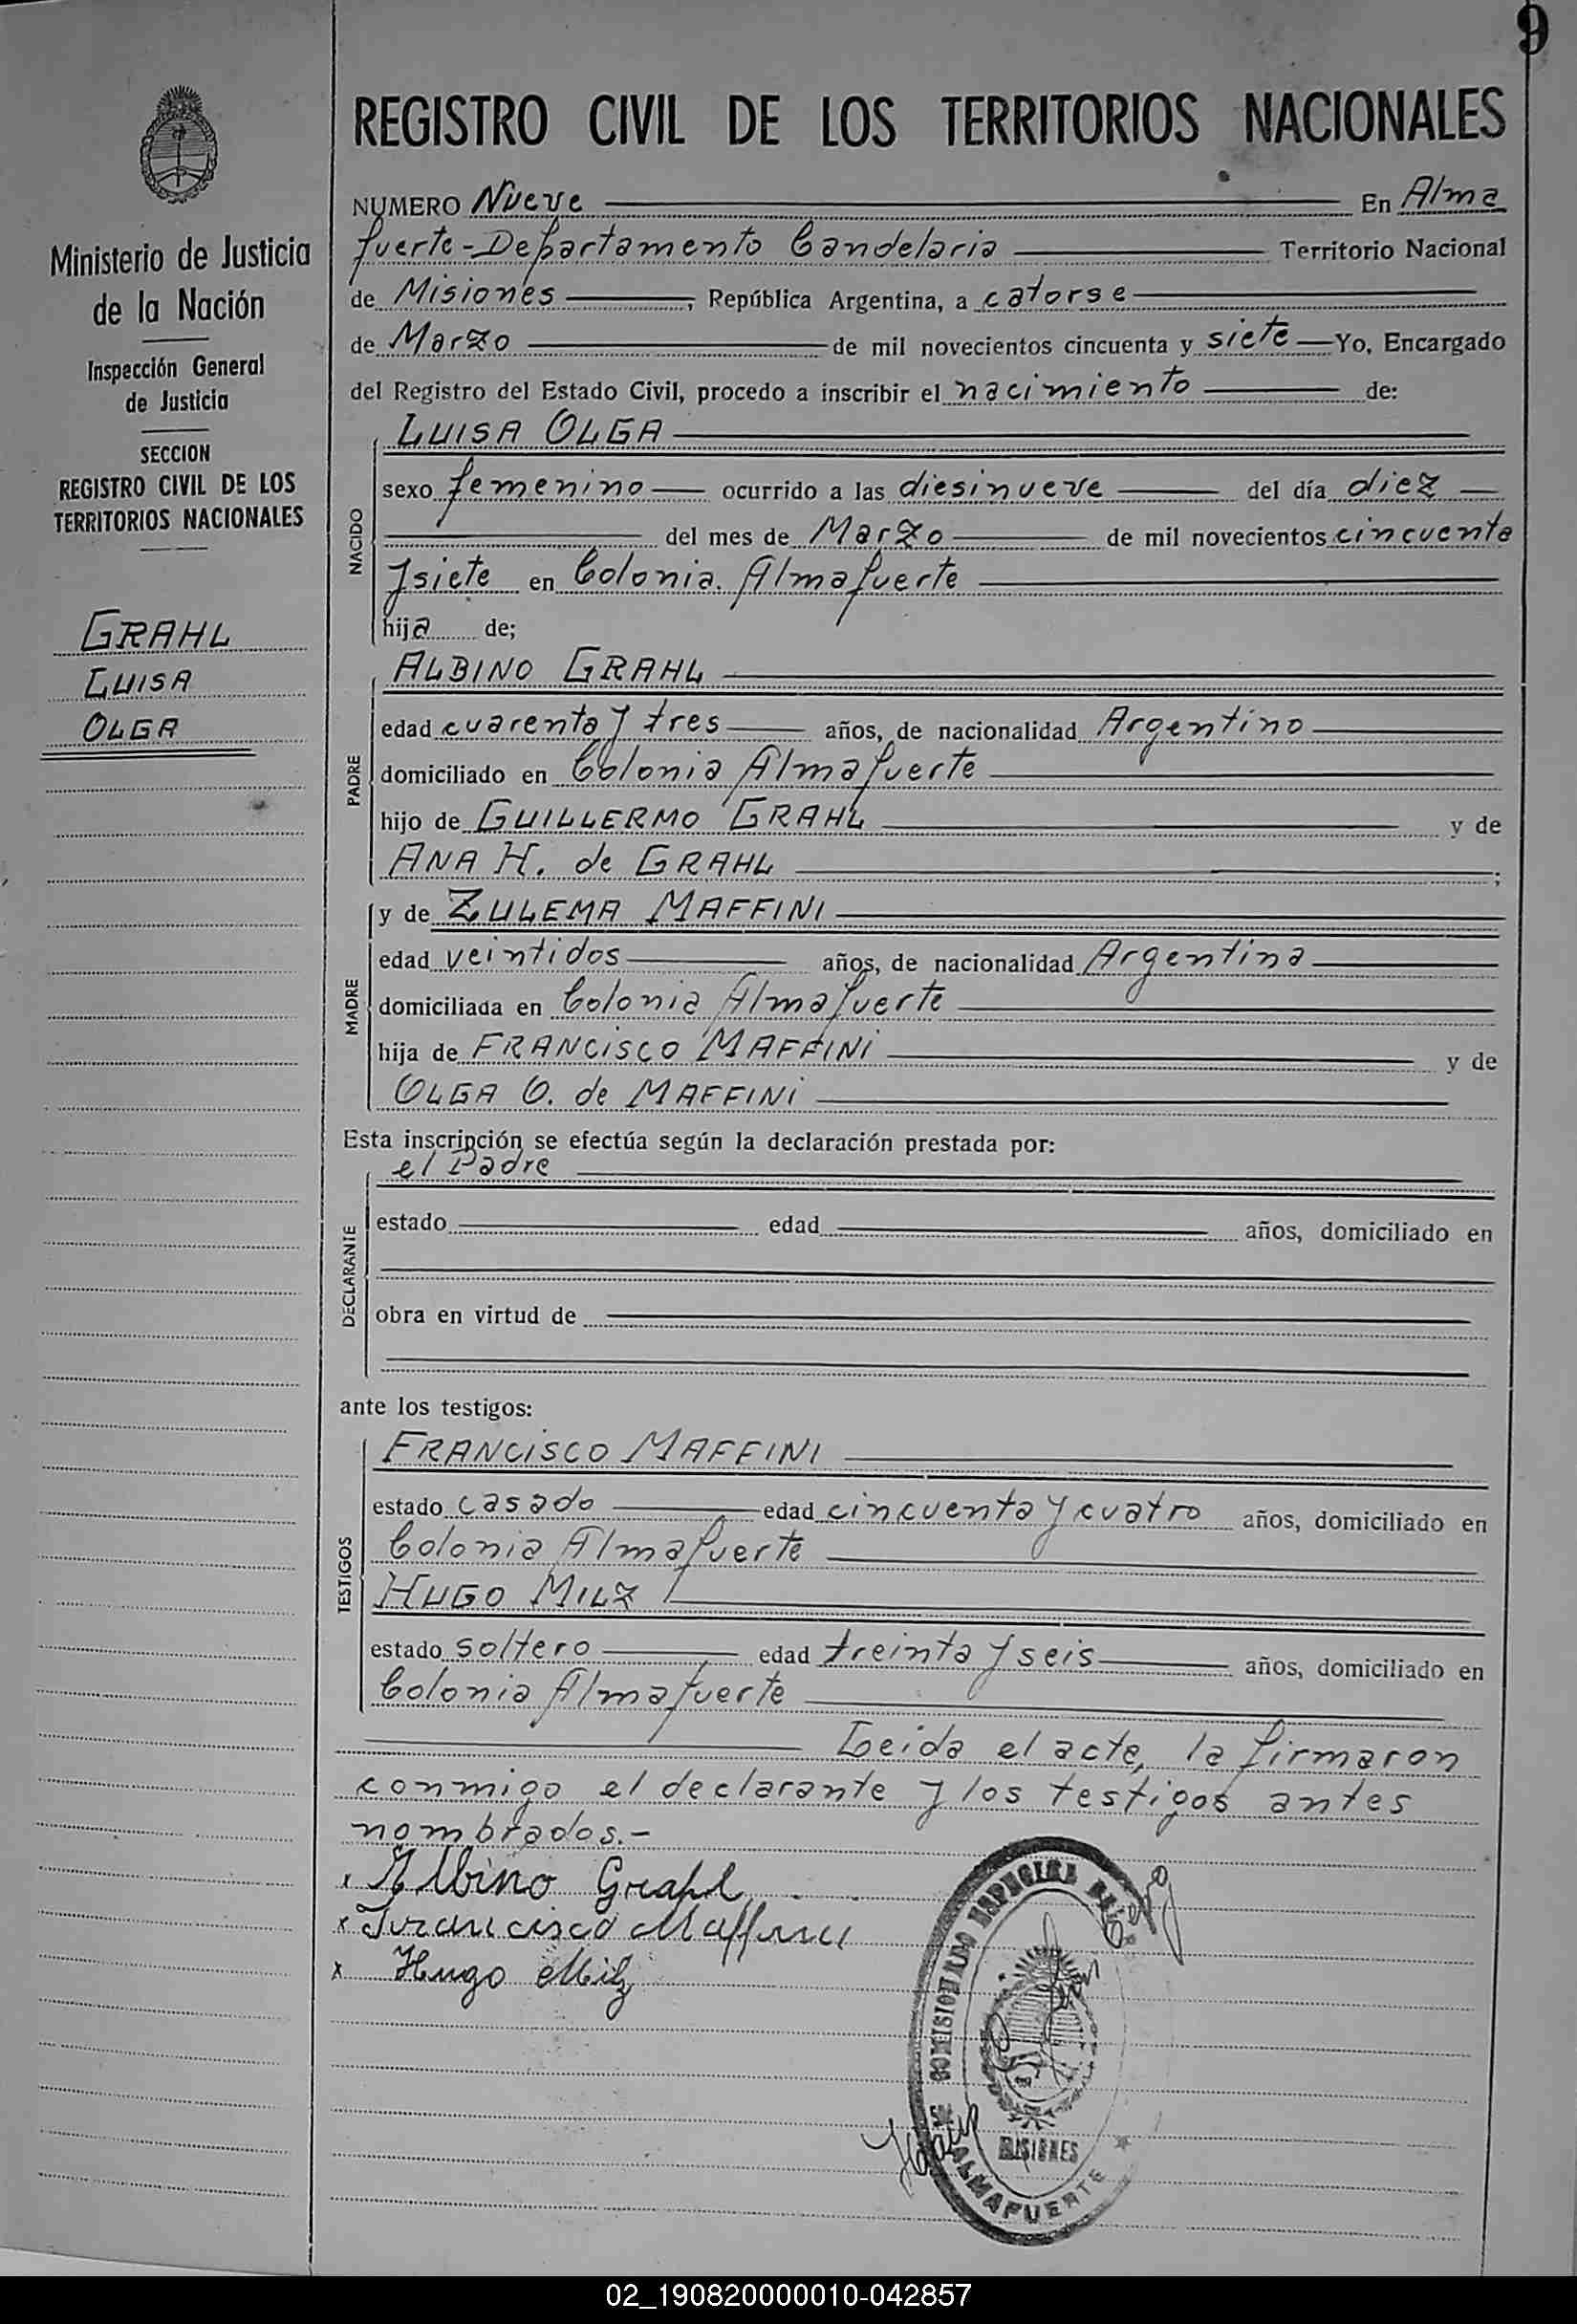 9
Ministerio de Justicia
de la Nación
Inspección General
de Justicia
SECCION
REGISTRO CIVIL DE LOS
TERRITORIOS NACIONALES
GRAHL
LUISA
OLGA
REGISTRO CIVIL DE LOS TERRITORIOS NACIONALES
NUMERO Nueve En Alma
fuerte-Departamento Candelaria Territorio Nacional
de Misiones, República Argentina, a catorse
de Marzo de mil novecientos cincuenta y siete Yo, Encargado
del Registro del Estado Civil, procedo a inscribir el nacimiento de:
NACIDO
LUISA OLGA
sexo femenino ocurrido a las diesinueve del día diez
del mes de Marzo de mil novecientos cincuenta
ysiete en Colonia. Almafuerte
hija de;
PADRE
ALBINO GRAHL
edad cuarenta y tres años, de nacionalidad Argentino
domiciliado en Colonia Almafuerte
hijo de GUILLERMO GRAHL y de
ANA H. de GRAHL;
MADRE
y de ZULEMA MAFFINI
edad veintidos años, de nacionalidad Argentina
domiciliada en Colonia Almafuerte
hija de FRANCISCO MAFFINI y de
OLGA O. de MAFFINI
Esta inscripción se efectúa según la declaración prestada por:
DECLARANTE
el Padre
estado edad años, domiciliado en
obra en virtud de
ante los testigos:
TESTIGOS
FRANCISCO MAFFINI
estado casado edad cincuenta y cuatro años, domiciliado en
Colonia Almafuerte
HUGO MILZ
estado soltero edad treinta y seis años, domiciliado en
Colonia Almafuerte
Leida el acte, la firmaron
conmigo el declarante y los testigos antes
nombrados.-
x Albino Grahl
x Francisco Maffini
x Hugo Milz
COMISIONADO ESPECIAL
MISIONES
ALMAFUERTE
02_190820000010-042857